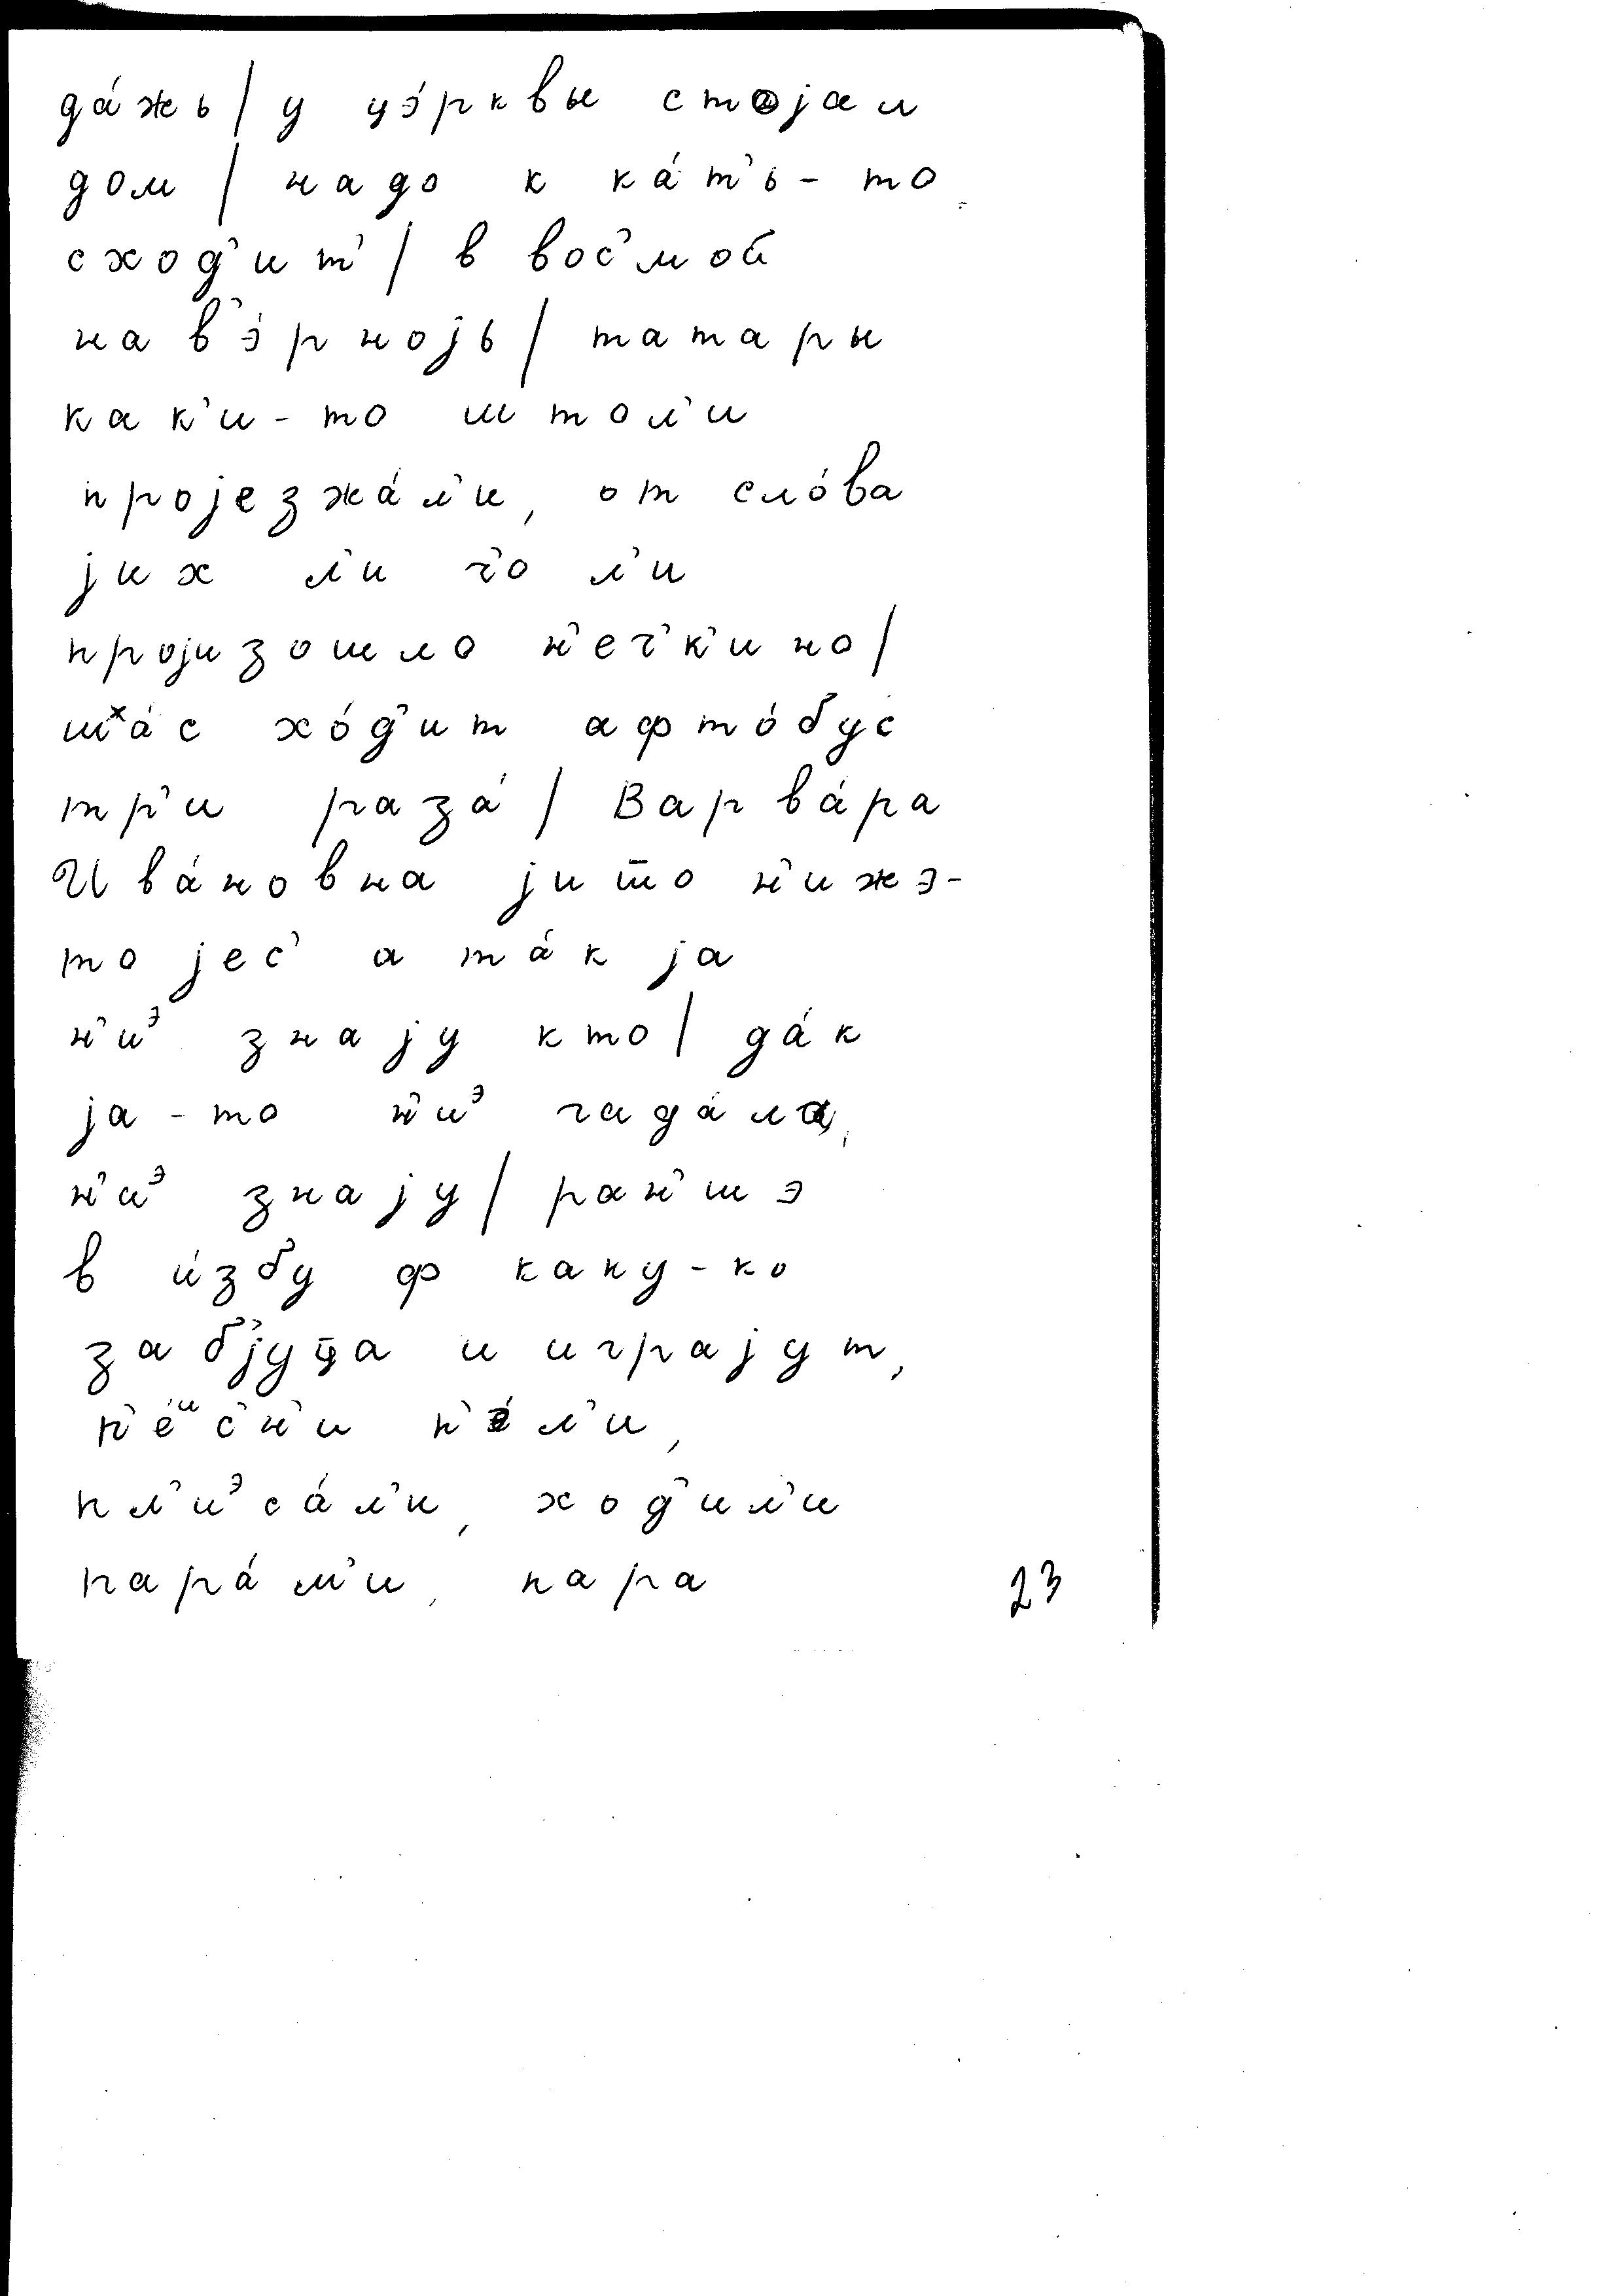 да́жь / у цэ́рквы стојал
дом / надо к ка́т'ь-то
сход'ит' / в вос'мой
на в'э́рнојь / татары
как'и-то штол'и
пројезжа́л'и, от сло́ва
јих л'и ч'о л'и
пројизошло н'еч'к'ино /
шˣа́с хо́д'ит афто́бус
тр'и раза́ / Варва́ра
Ива́новна јиш̄о н'ижэ-
то јес' а та́к ја
н'иᵊ знају кто / да́к
ја-то н'иᵊ гада́ла,
н'иᵊ знају / ран'шэ
в и́збу ф каку-ко
заб'јуц̄а и играјут,
п'е́ᶦс'н'и п'э́л'и,
пл'иᵊса́л'и, ход'ил'и
пара́м'и, пара
23